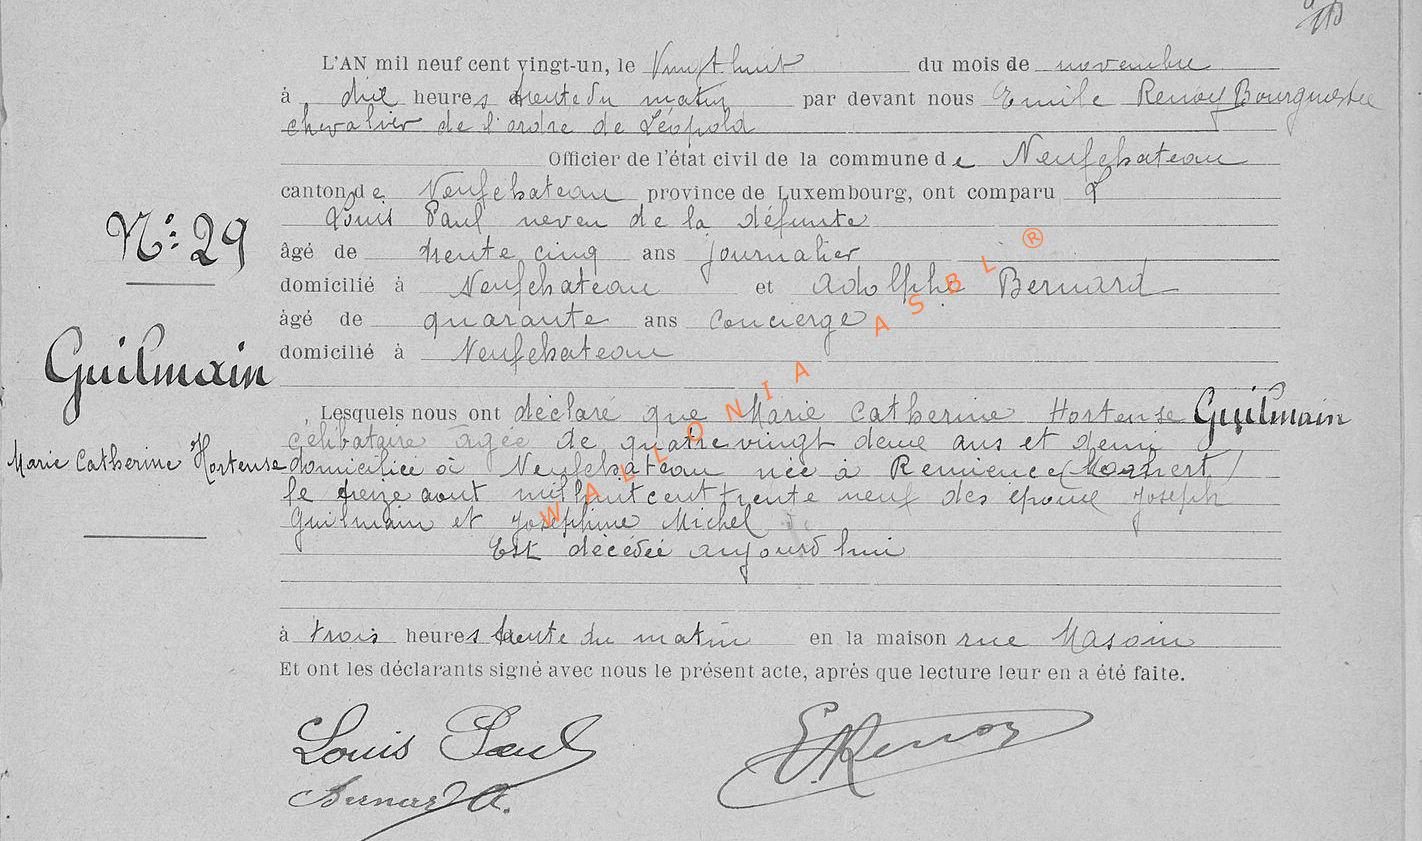 L'AN mil neuf cent vingt-un, le Vingt huit du mois de novembre
à dix heures trente du matin par devant nous Emile Renoy Bourgmestre
chevalier de l'ordre de Léopold
Officier de l'état civil de la commune de Neufchateau
canton de Neufchateau province de Luxembourg, ont comparu
Louis Paul neveu de la défunte
âgé de trente cinq ans journalier
domicilié à Neufchateau et Adolphe Bernard
âgé de quarante ans concierge
domicilié à Neufchateau
N: 29
Guilmain
Marie Catherine Hortense
Lesquels nous ont déclaré que Marie Catherine Hortense Guilmain
célibataire agée de quatre vingt deux ans et demi
domiciliée à Neufchateau née à Remience
le treize aout mil huit cent trente neuf des époux Joseph
Guilmain et Joséphine Michel
Est décédée aujourd'hui
à trois heures trente du matin en la maison rue Masoin
Et ont les déclarants signé avec nous le présent acte, après que lecture leur en a été faite.
Louis Paul
E. Renoy
Bernard A.
WALLONIA ASBL ®